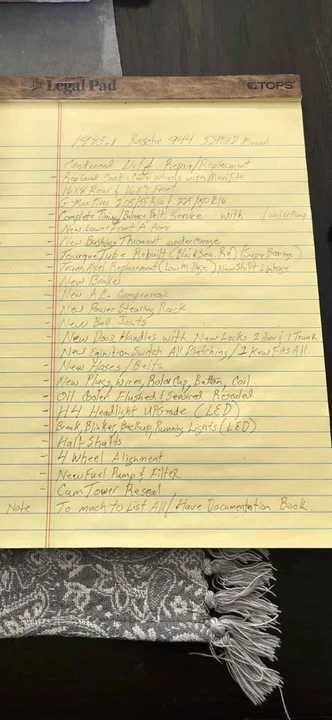 the Legal Pad TOPS
1985.1 Porsche 944 5 SPEED Manual
Condensed List Repair/Replacement
- Replaced Cookie Cutter Wheels with Maxilite
16x8 Rear & 16x7 Front
G-Max Tires 225/55R16 & 225/50R16
- Complete Timing/Balance Belt Service with / Water Pump
- New Lower Front A Arms
- New Bushings Throuout undercarage
- Tourque Tube Rebuilt (Black Sea Rd) (Bearings)
- Trans Axel Replacement (Low Milage) New Shift Linkage
- New Brakes
- New A.C. Compressor
- New Power Stearing Rack
- New Ball Joints
- New Door Handles with New Locks 2 door 1 Trunk
- New ignition Switch All Matching / 1 Key Fits All
- New Hoses / Belts
- New Plugs, Wires, Rotor Cap, Button, Coil.
- Oil Cooler Flushed & Serviced Resealed
- H4 Headlight UPgrade (LED)
- Break, Blinker, Backup, Running Lights (LED)
- Half Shafts
- 4 Wheel Alignment
- New Fuel Pump & Filter
- Cam Tower Reseal
Note To much to List All / Have Documentation Book